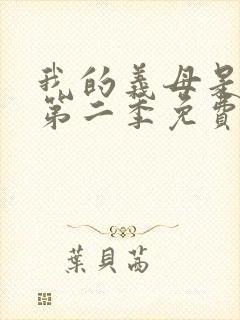 我的義母是
第二季免費
葉貝茜